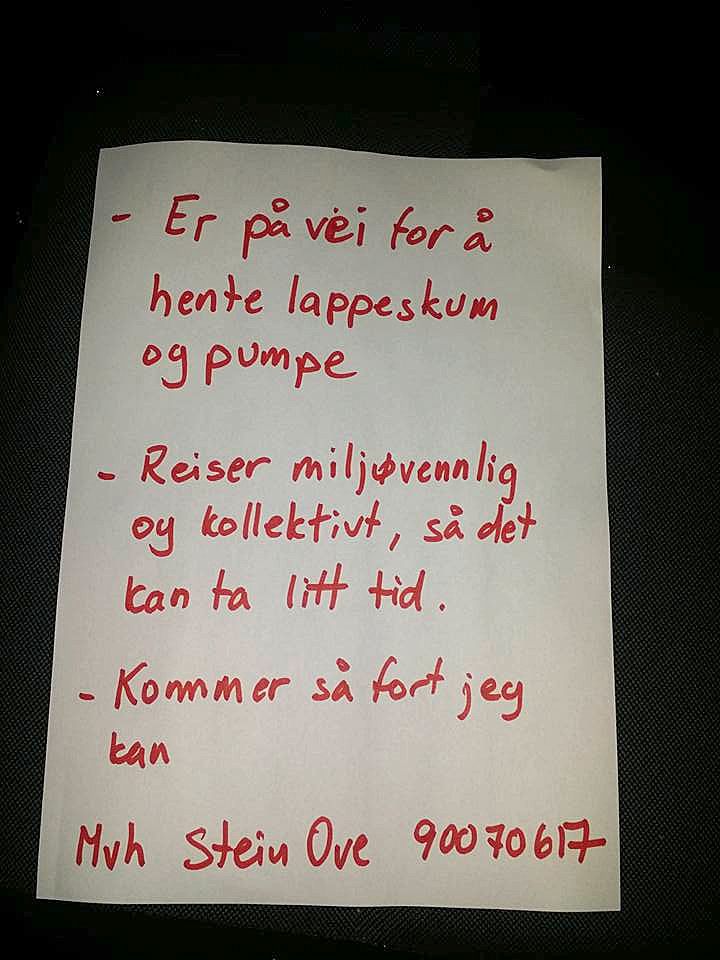 - Er på vei for å
hente lappeskum
og pumpe
- Reiser miljøvennlig
og kollektivt, så det
kan ta litt tid.
- Kommer så fort jeg
kan
Mvh Stein Ove 90070617